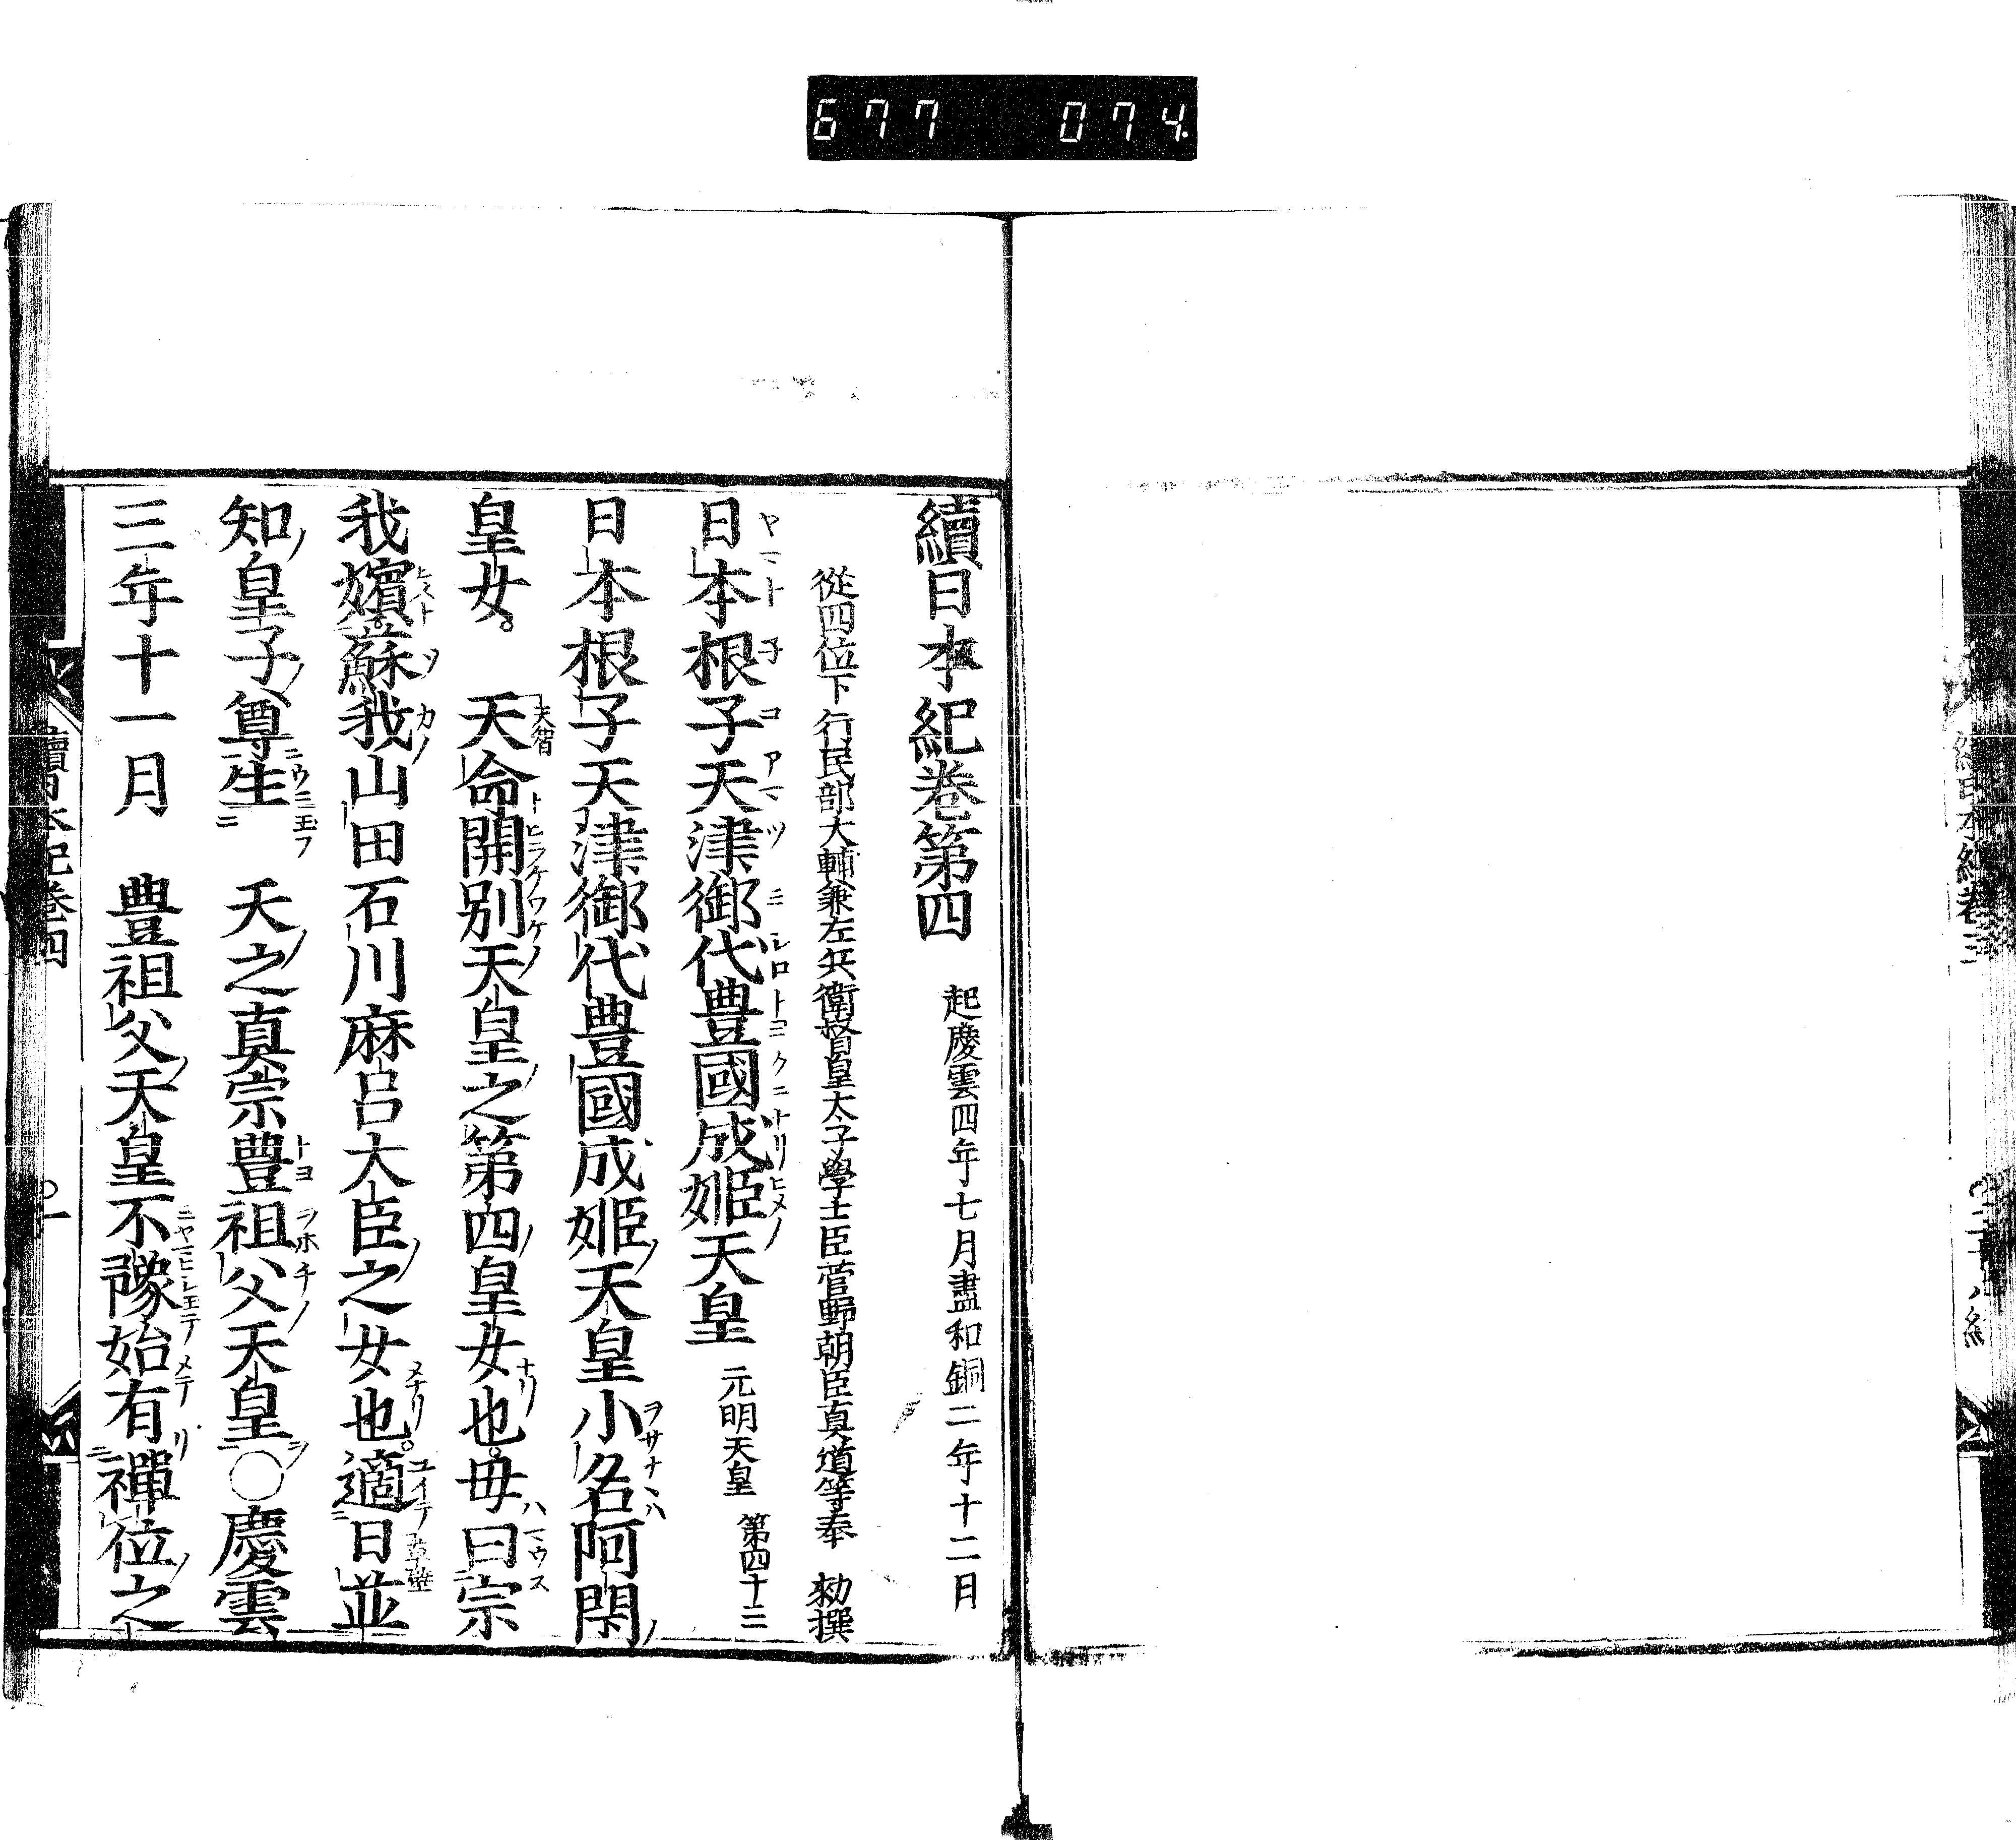 677 074
續日本紀卷第四 起慶雲四年七月盡和銅二年十二月
從四位下行民部大輔兼左兵衞督皇太子學士臣菅野朝臣真道等奉 勅撰
日本根子天津御代豊國成姬天皇 元明天皇 第四十三
日本根子天津御代豊國成姬天皇小名阿閇
皇女。 天命開別天皇之第四皇女也。母曰宗
我嬪。蘇我山田石川麻呂大臣之女也。適日並
知皇子尊生 天之真宗豊祖父天皇○慶雲
三年十一月 豊祖父天皇不豫始有禪位之
續日本紀卷四 ○一